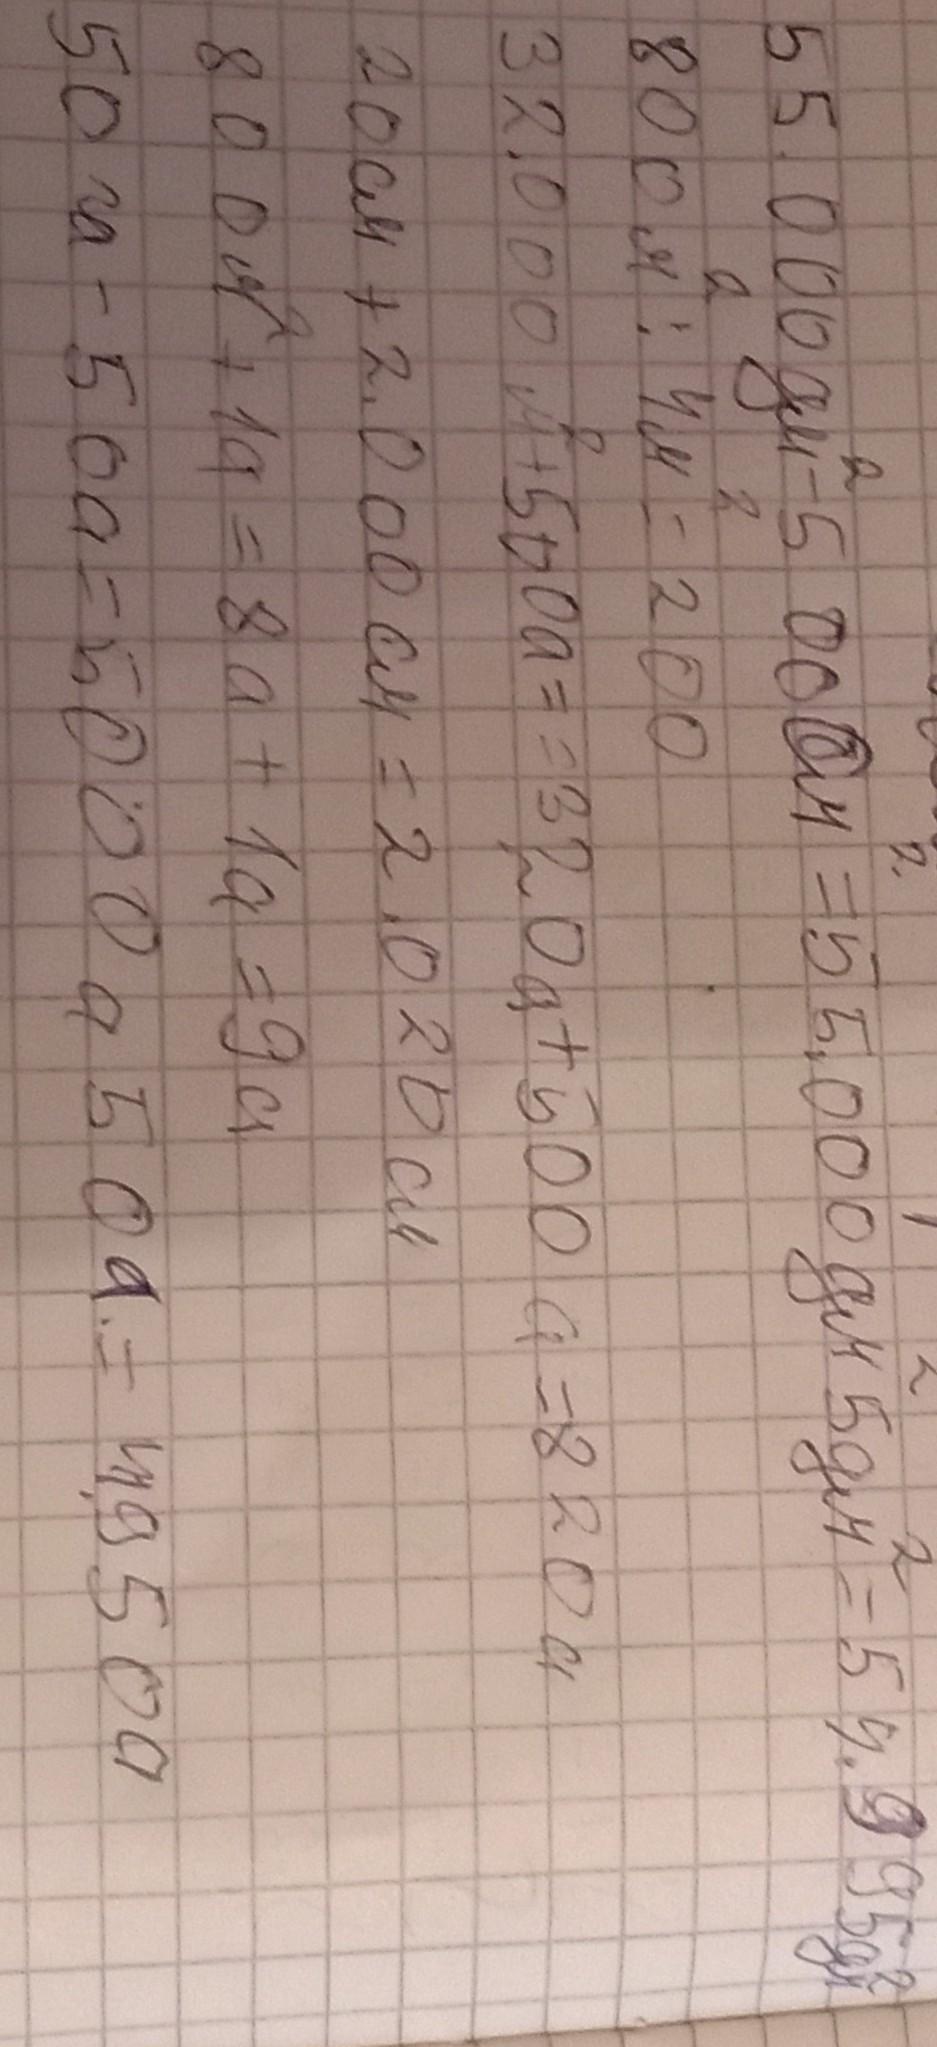 55.000дм²-5 000см²=55.000дм²5дм²=54.995дм²
800м²:4м²=200
32.000м²+500а==320а+500а=820а
20см+2.000см=2.020см
800м²+1а=8а+1а=9а
50га-50а=5000а50а.=4.950а